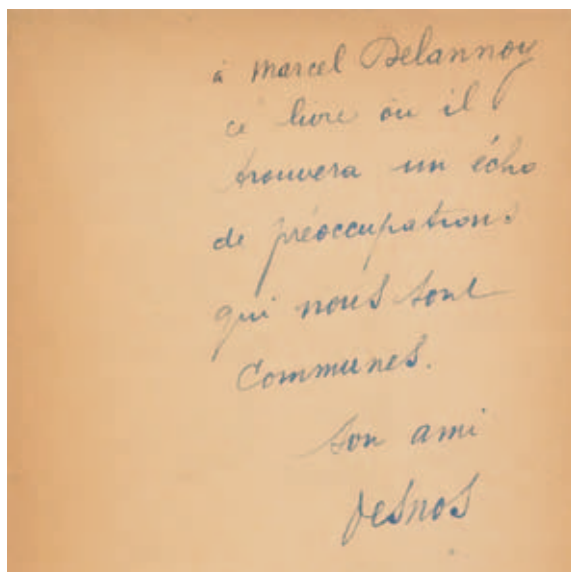 à Marcel Delannoy
ce livre où il
trouvera un écho
de préoccupations
qui nous sont
Communes.
son ami
Desnos